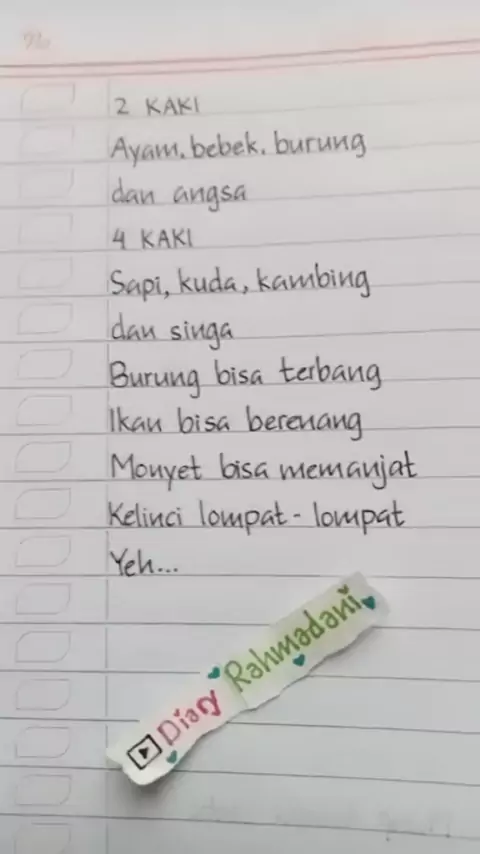 2 KAKI
Ayam, bebek, burung
dan angsa
4 KAKI
Sapi, kuda, kambing
dan singa
Burung bisa terbang
Ikan bisa berenang
Monyet bisa memanjat
Kelinci lompat-lompat
Yeh...
Diary Rahmadani